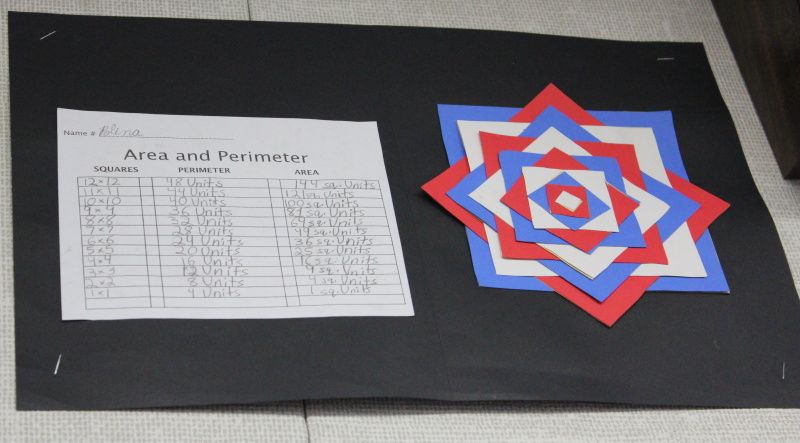 Name # Blina
Area and Perimeter
SQUARES PERIMETER AREA
12×12 48 Units 144 sq. Units
11×11 44 Units 121 sq. Units
10×10 40 Units 100 sq. Units
9×9 36 Units 81 sq. Units
8×8 32 Units 64 sq. Units
7×7 28 Units 49 sq. Units
6×6 24 Units 36 sq. Units
5×5 20 Units 25 sq. Units
4×4 16 Units 16 sq. Units
3×3 12 Units 9 sq. Units
2×2 8 Units 4 sq. Units
1×1 4 Units 1 sq. Units